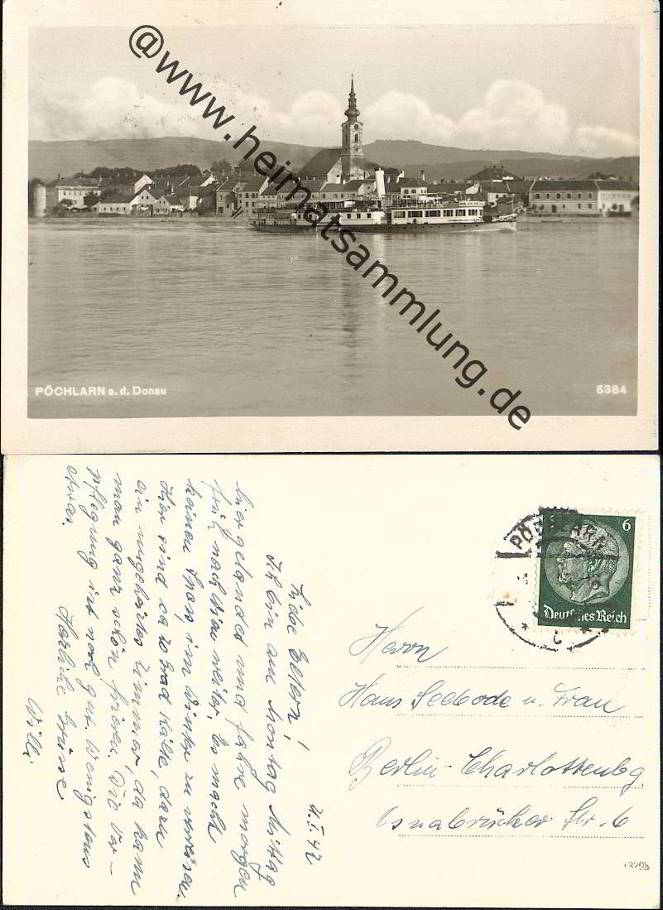 @www.heimatsammlung.de
PÖCHLARN a. d. Donau
5384
4.I.42
Liebe Eltern!
Ich bin am Montag Mittag
hier gelandet und fahre morgen
früh nach Wien weiter. Es macht
keinen Spass, im Winter zu verreisen.
Hier sind ca 20 Grad Kälte, dazu
ein ungeheiztes Zimmer, da kann
man ganz schön frieren. Die Ver-
pflegung ist noch gut. Wenigstens
etwas.
Herzliche Grüsse
Willi.
PÖCHLARN
6
Deutsches Reich
Herrn
Hans Seebode u. Frau
Berlin-Charlottenbg
Osnabrücker Str. 6
13298